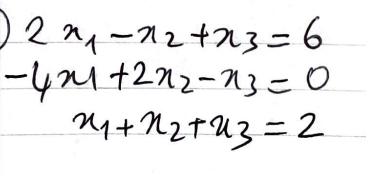 ) 2x₁ - x₂ + x₃ = 6
-4x1 + 2x₂ - x₃ = 0
x₁ + x₂ + x₃ = 2